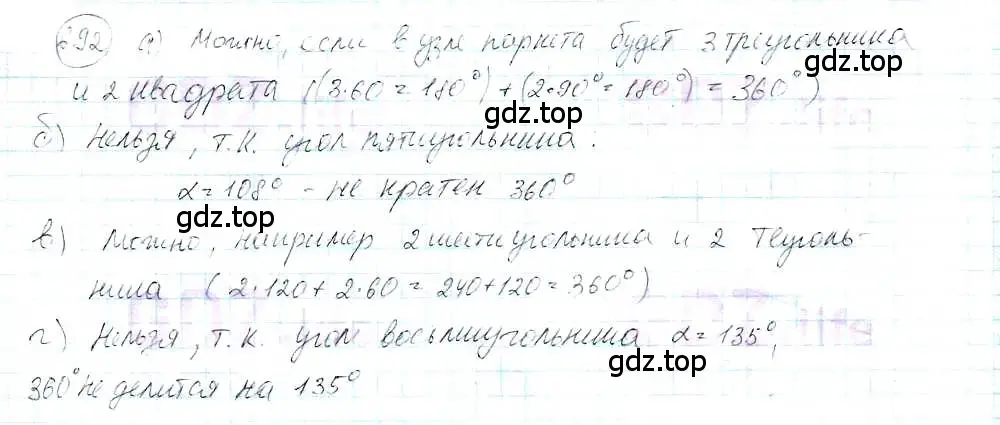 692) а) Можно, если в узле паркета будет 3 треугольника
и 2 квадрата ((3·60=180°)+(2·90°=180°)=360°)
gdz.top
б) Нельзя, т.к. угол пятиугольника.
α=108° - не кратен 360°
gdz.top
в) Можно, например 2 шестиугольника и 2 треуголь-
ника (2·120+2·60=240+120=360°)
gdz.top
gdz.top
г) Нельзя, т.к. угол восьмиугольника α=135°,
360° не делится на 135°
gdz.top